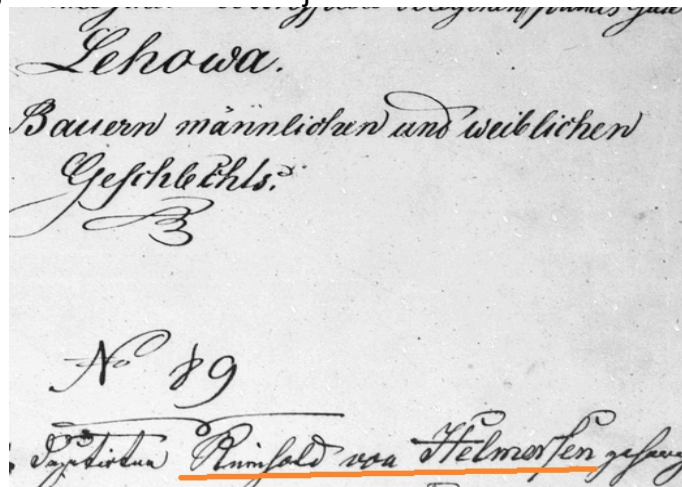 Lehowa.
Bauern männlichen und weiblichen
Geschlechts.
No 89
Reinhold von Helmersen